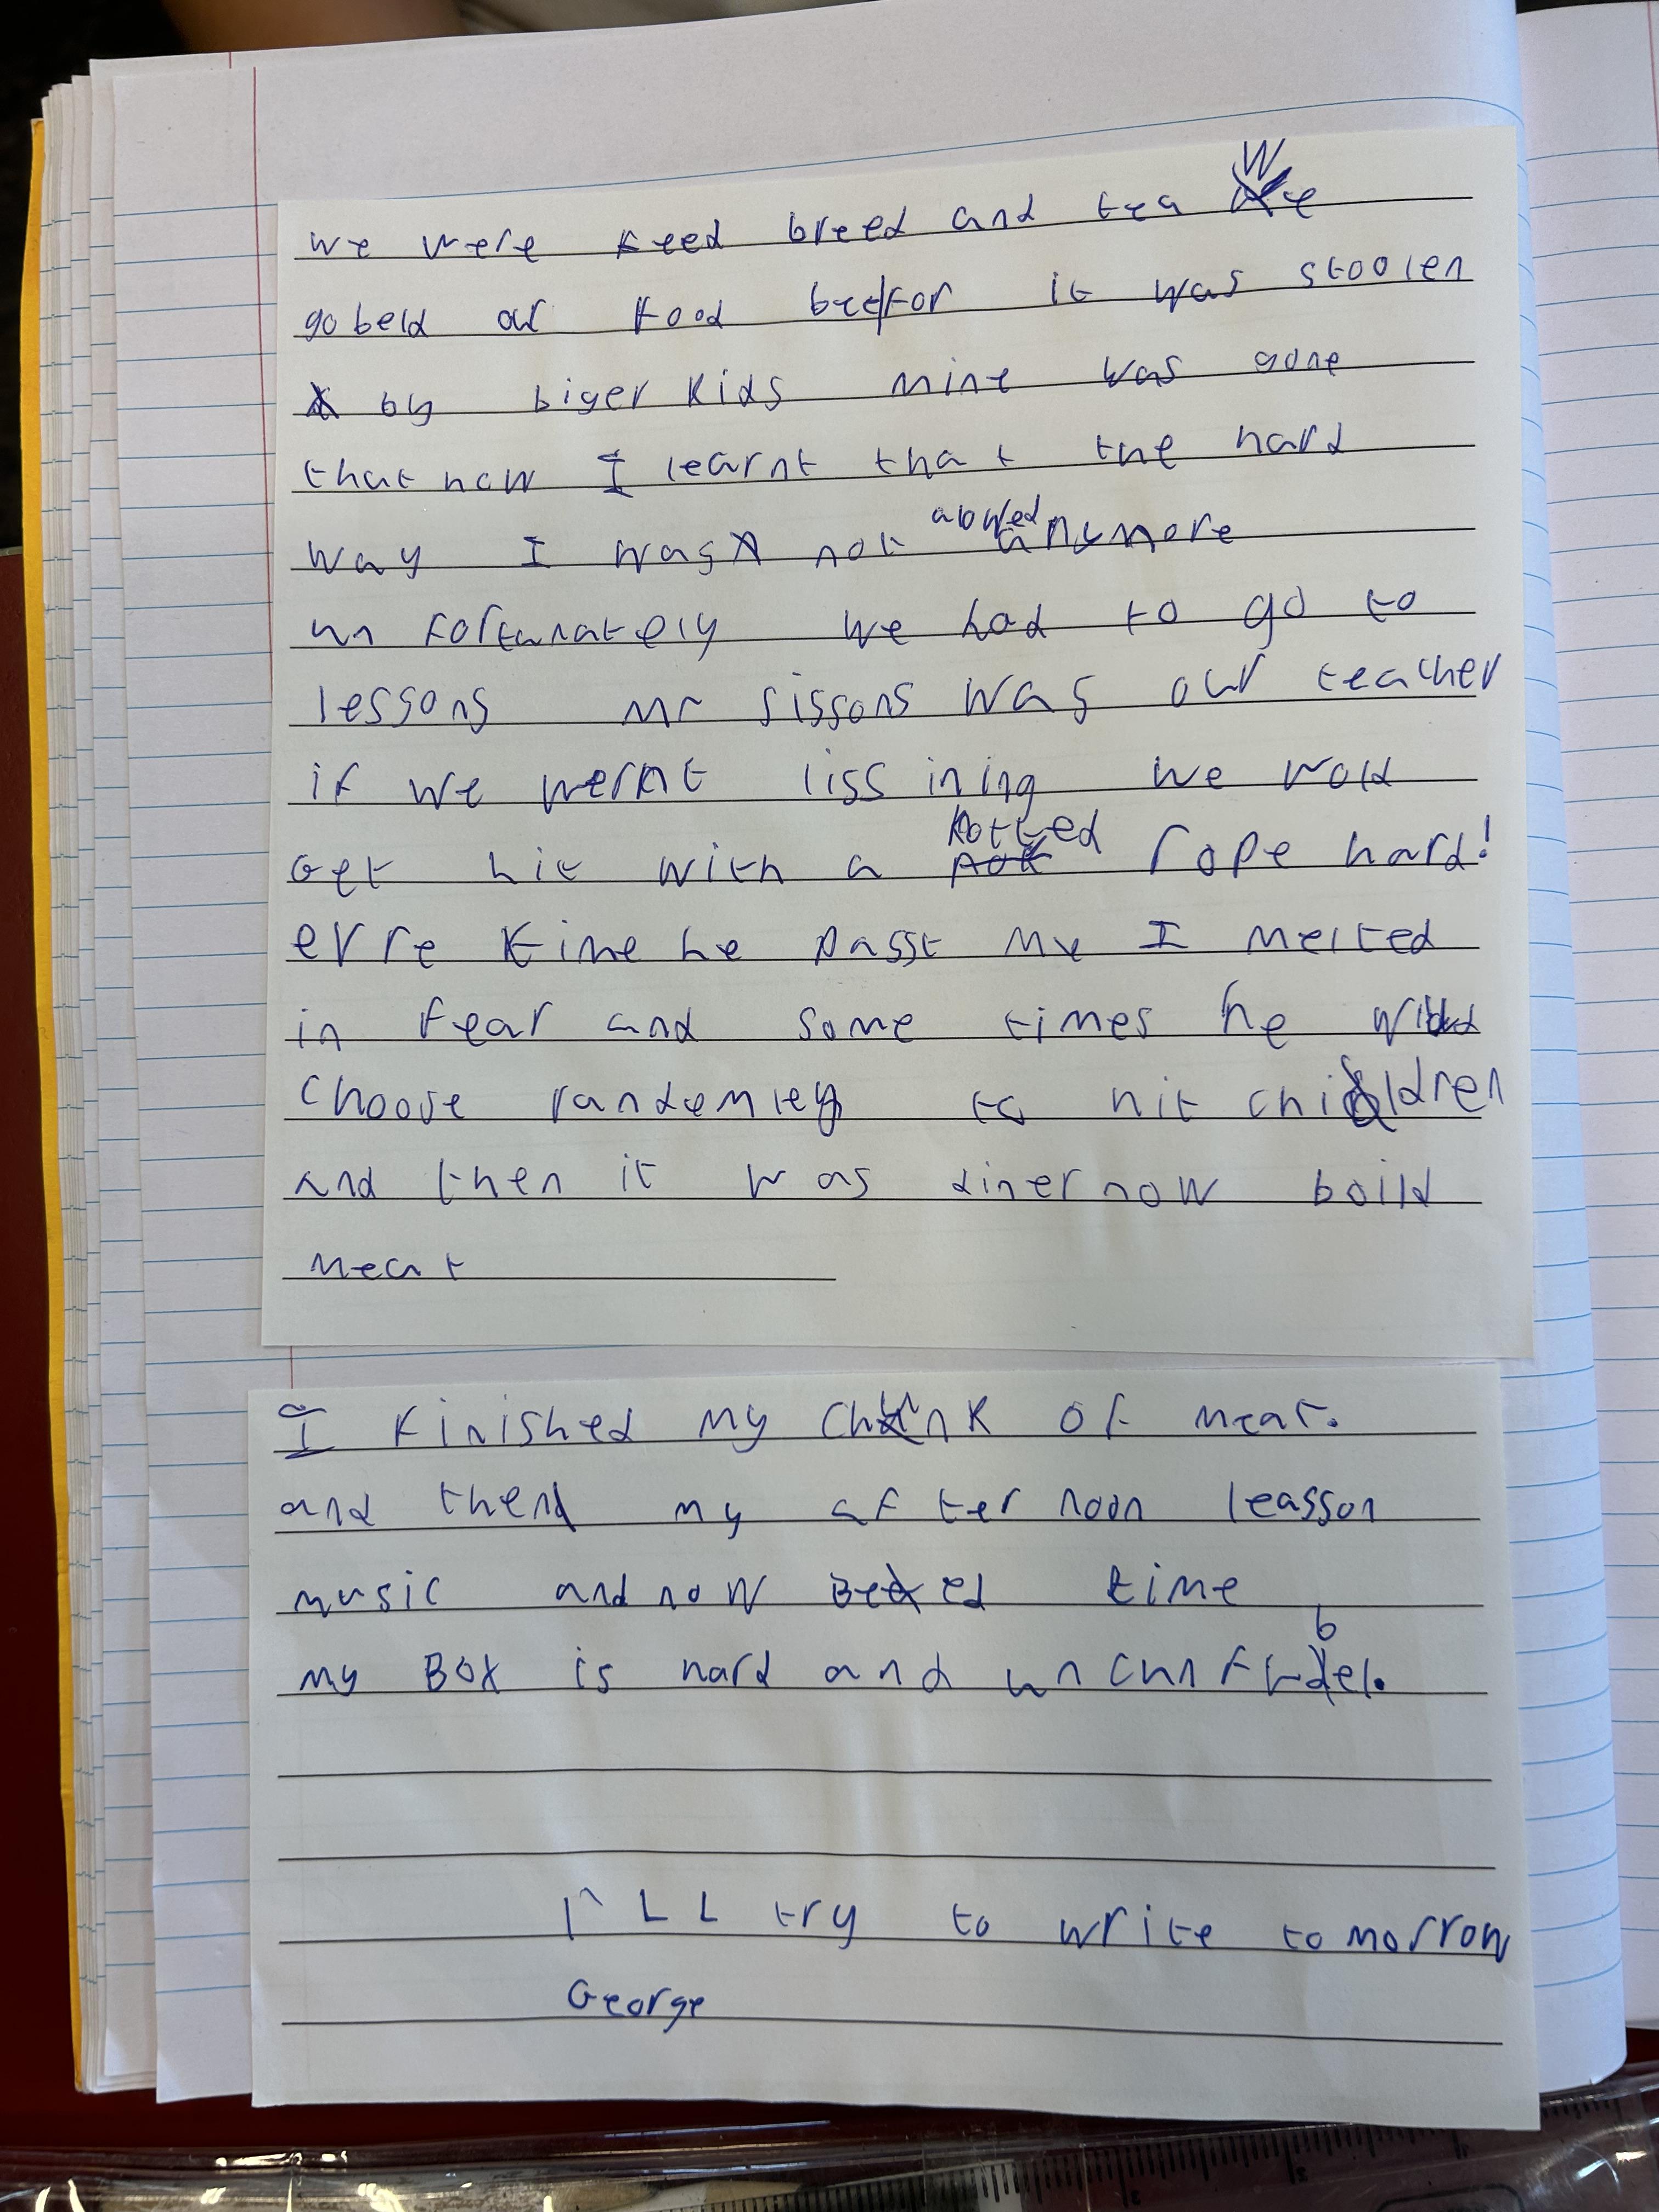 we were feed breed and tea We
gobeld our food beefor it was stoolen
by biger kids mine was gone
that how I learnt that the hard
way I was not alowed anymore
un fortunately we had to go to
lessons mr sissons was our teacher
if we wernt liss ining we wold
Get hit with a notted rope hard!
evre time he passt me I melted
in fear and some times he
choose randemley to hit children
and then it was diner now boild
meat
I finished my chunk of meat.
and then my af ter noon leasson
music and now Bed time
my BOX is hard and uncunfrbel.
I'LL try to write tomorrow
George